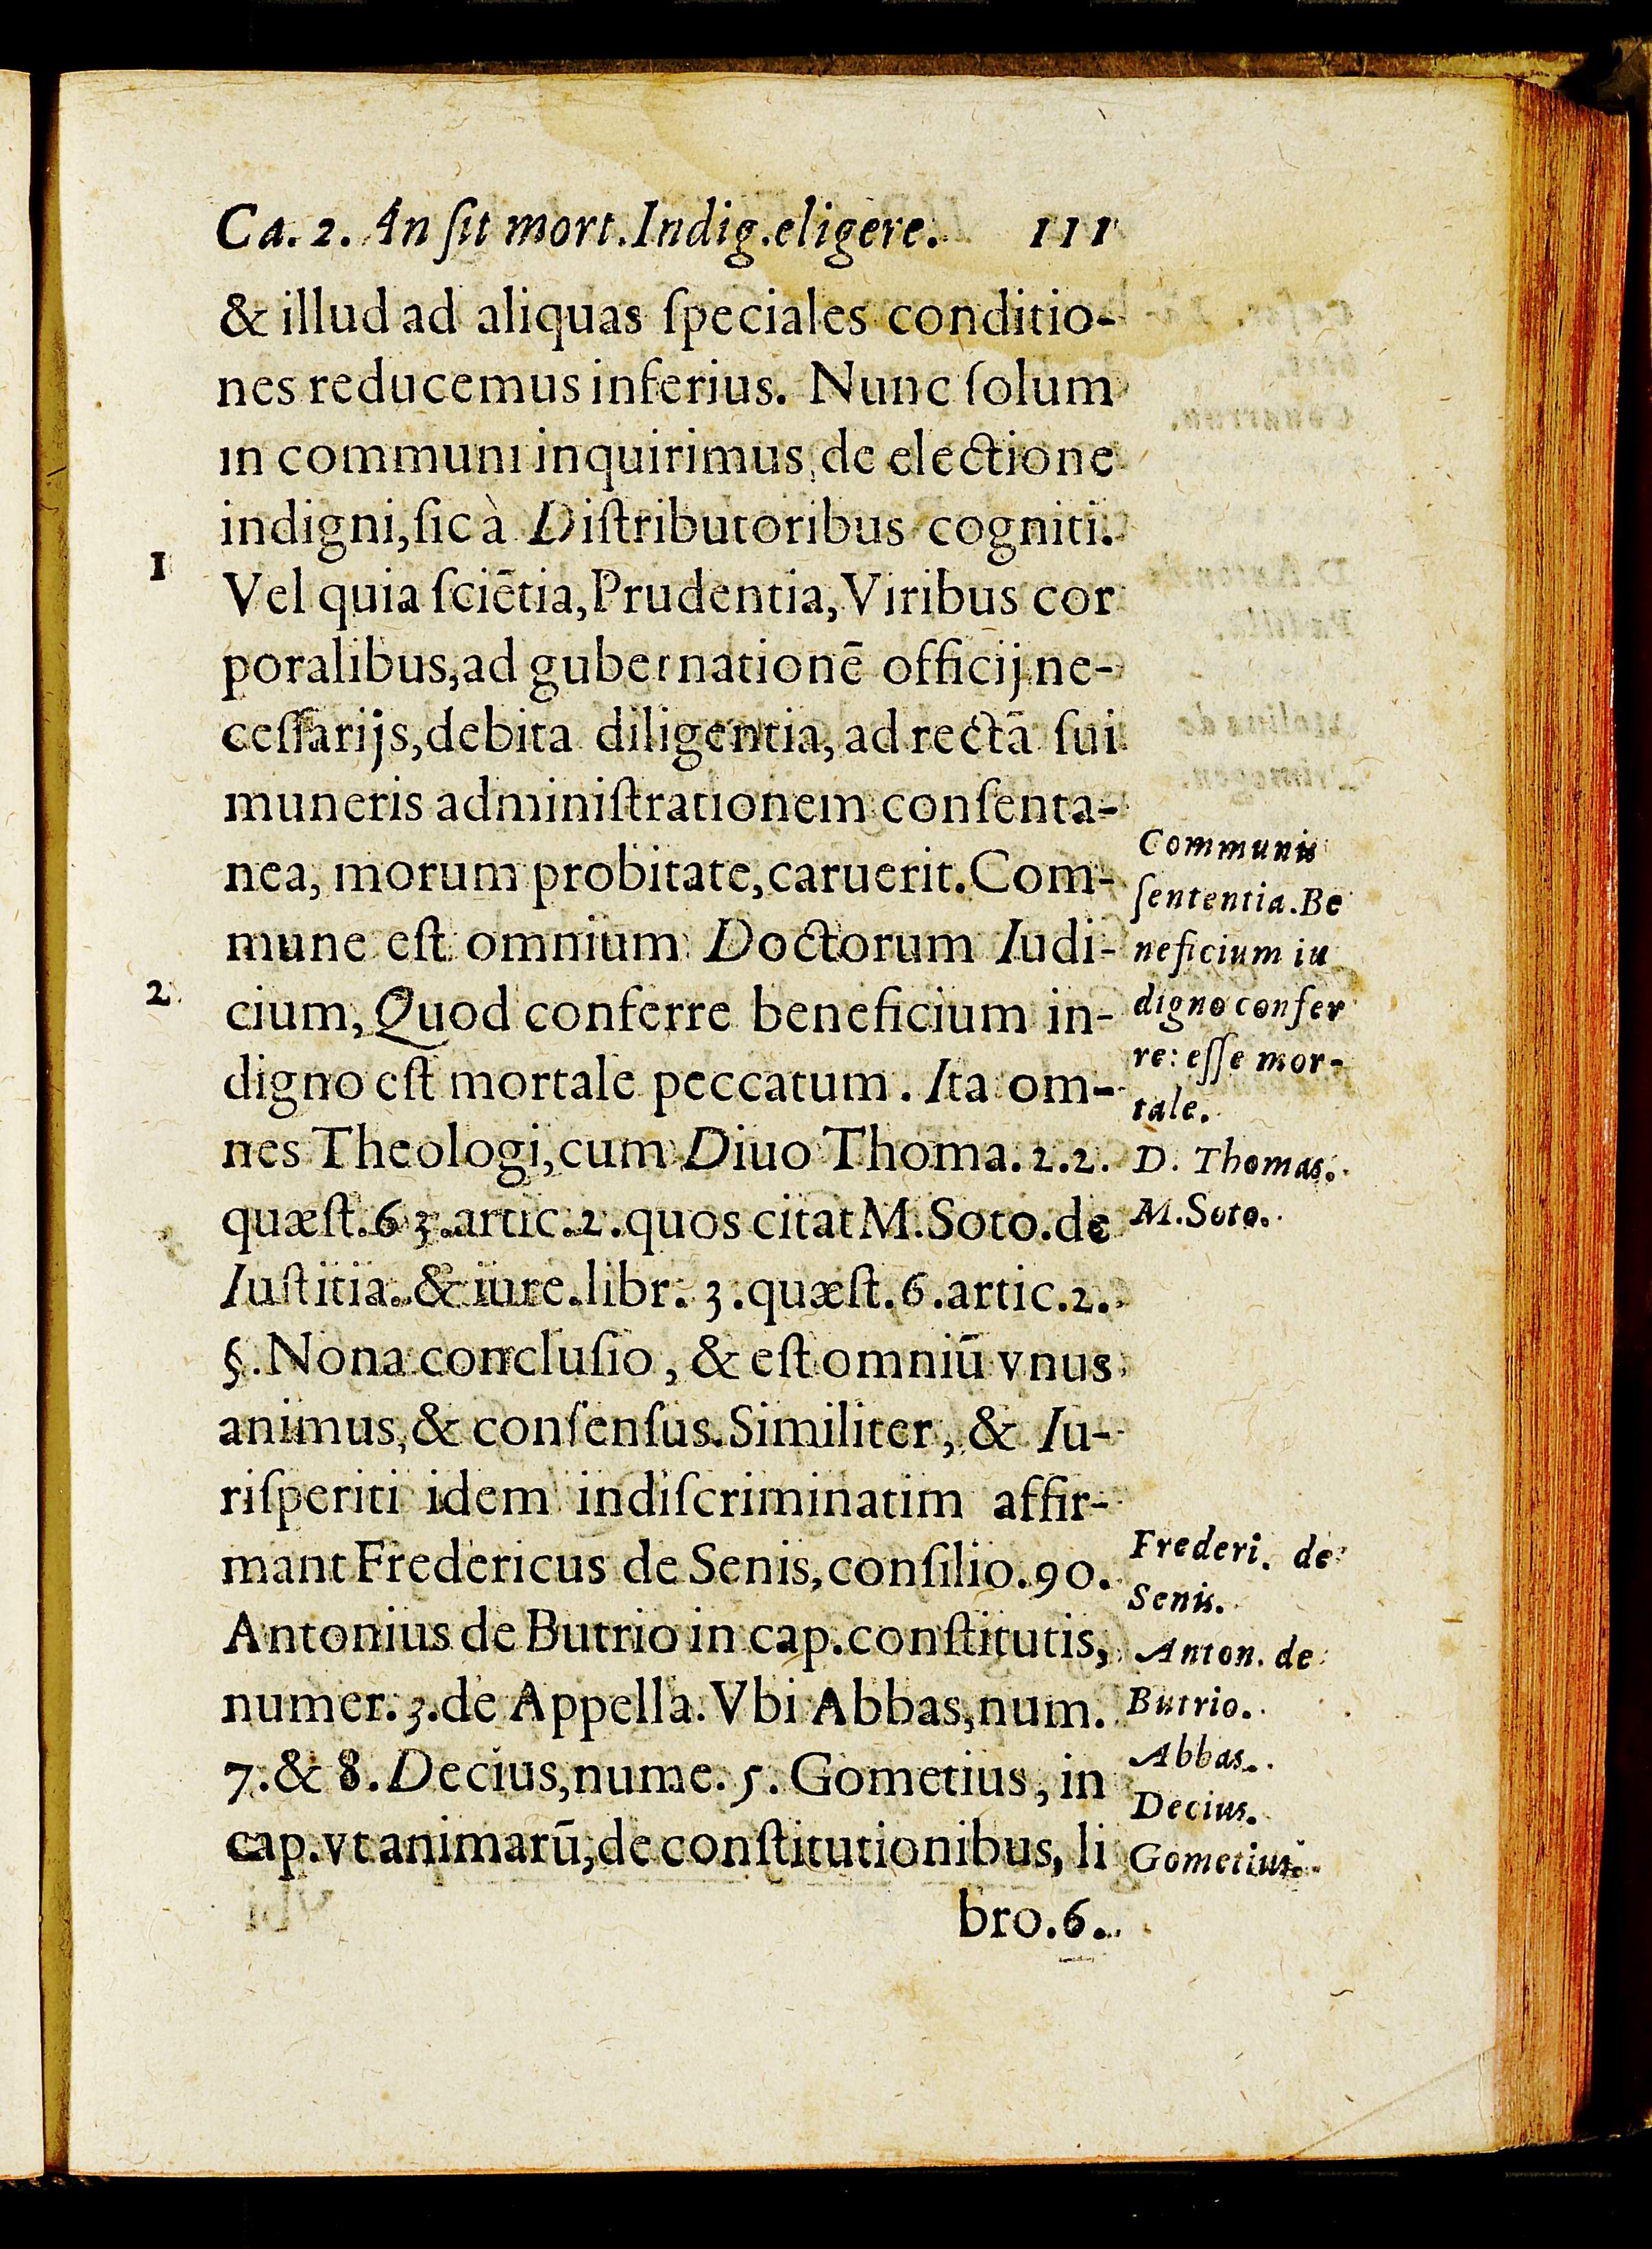 Ca. 2. An ſit mort. Indig. eligere. 111
& illud ad aliquas ſpeciales conditio-
nes reducemus inferius. Nunc ſolum
in communi inquirimus, de electione
indigni, ſic à Diſtributoribus cogniti.
1
Vel quia ſciētia, Prudentia, Viribus cor
poralibus, ad gubernationē officij ne-
ceſſarijs, debita diligentia, ad rectā ſui
muneris adminiſtrationem conſenta-
nea, morum probitate, caruerit. Com-
mune eſt omnium Doctorum Iudi-
2
cium, Quod conferre beneficium in-
digno eſt mortale peccatum. Ita om-
nes Theologi, cum Diuo Thoma. 2.2.
quæſt. 63. artic. 2. quos citat M. Soto. de
Iuſtitia. & iure. libr. 3. quæſt. 6. artic. 2.
§. Nona concluſio, & eſt omniū vnus
animus, & conſenſus. Similiter, & Iu-
riſperiti idem indiſcriminatim affir-
mant Fredericus de Senis, conſilio. 90.
Antonius de Butrio in cap. conſtitutis,
numer. 3. de Appella. Vbi Abbas, num.
7. & 8. Decius, nume. 5. Gometius, in
cap. vt animarū, de conſtitutionibus, li
bro. 6.
Communis
ſententia. Be
neficium in
digno confer
re: eſſe mor-
tale.
D. Thomas.
M. Soto.
Frederi. de
Senis.
Anton. de
Butrio.
Abbas.
Decius.
Gometius.